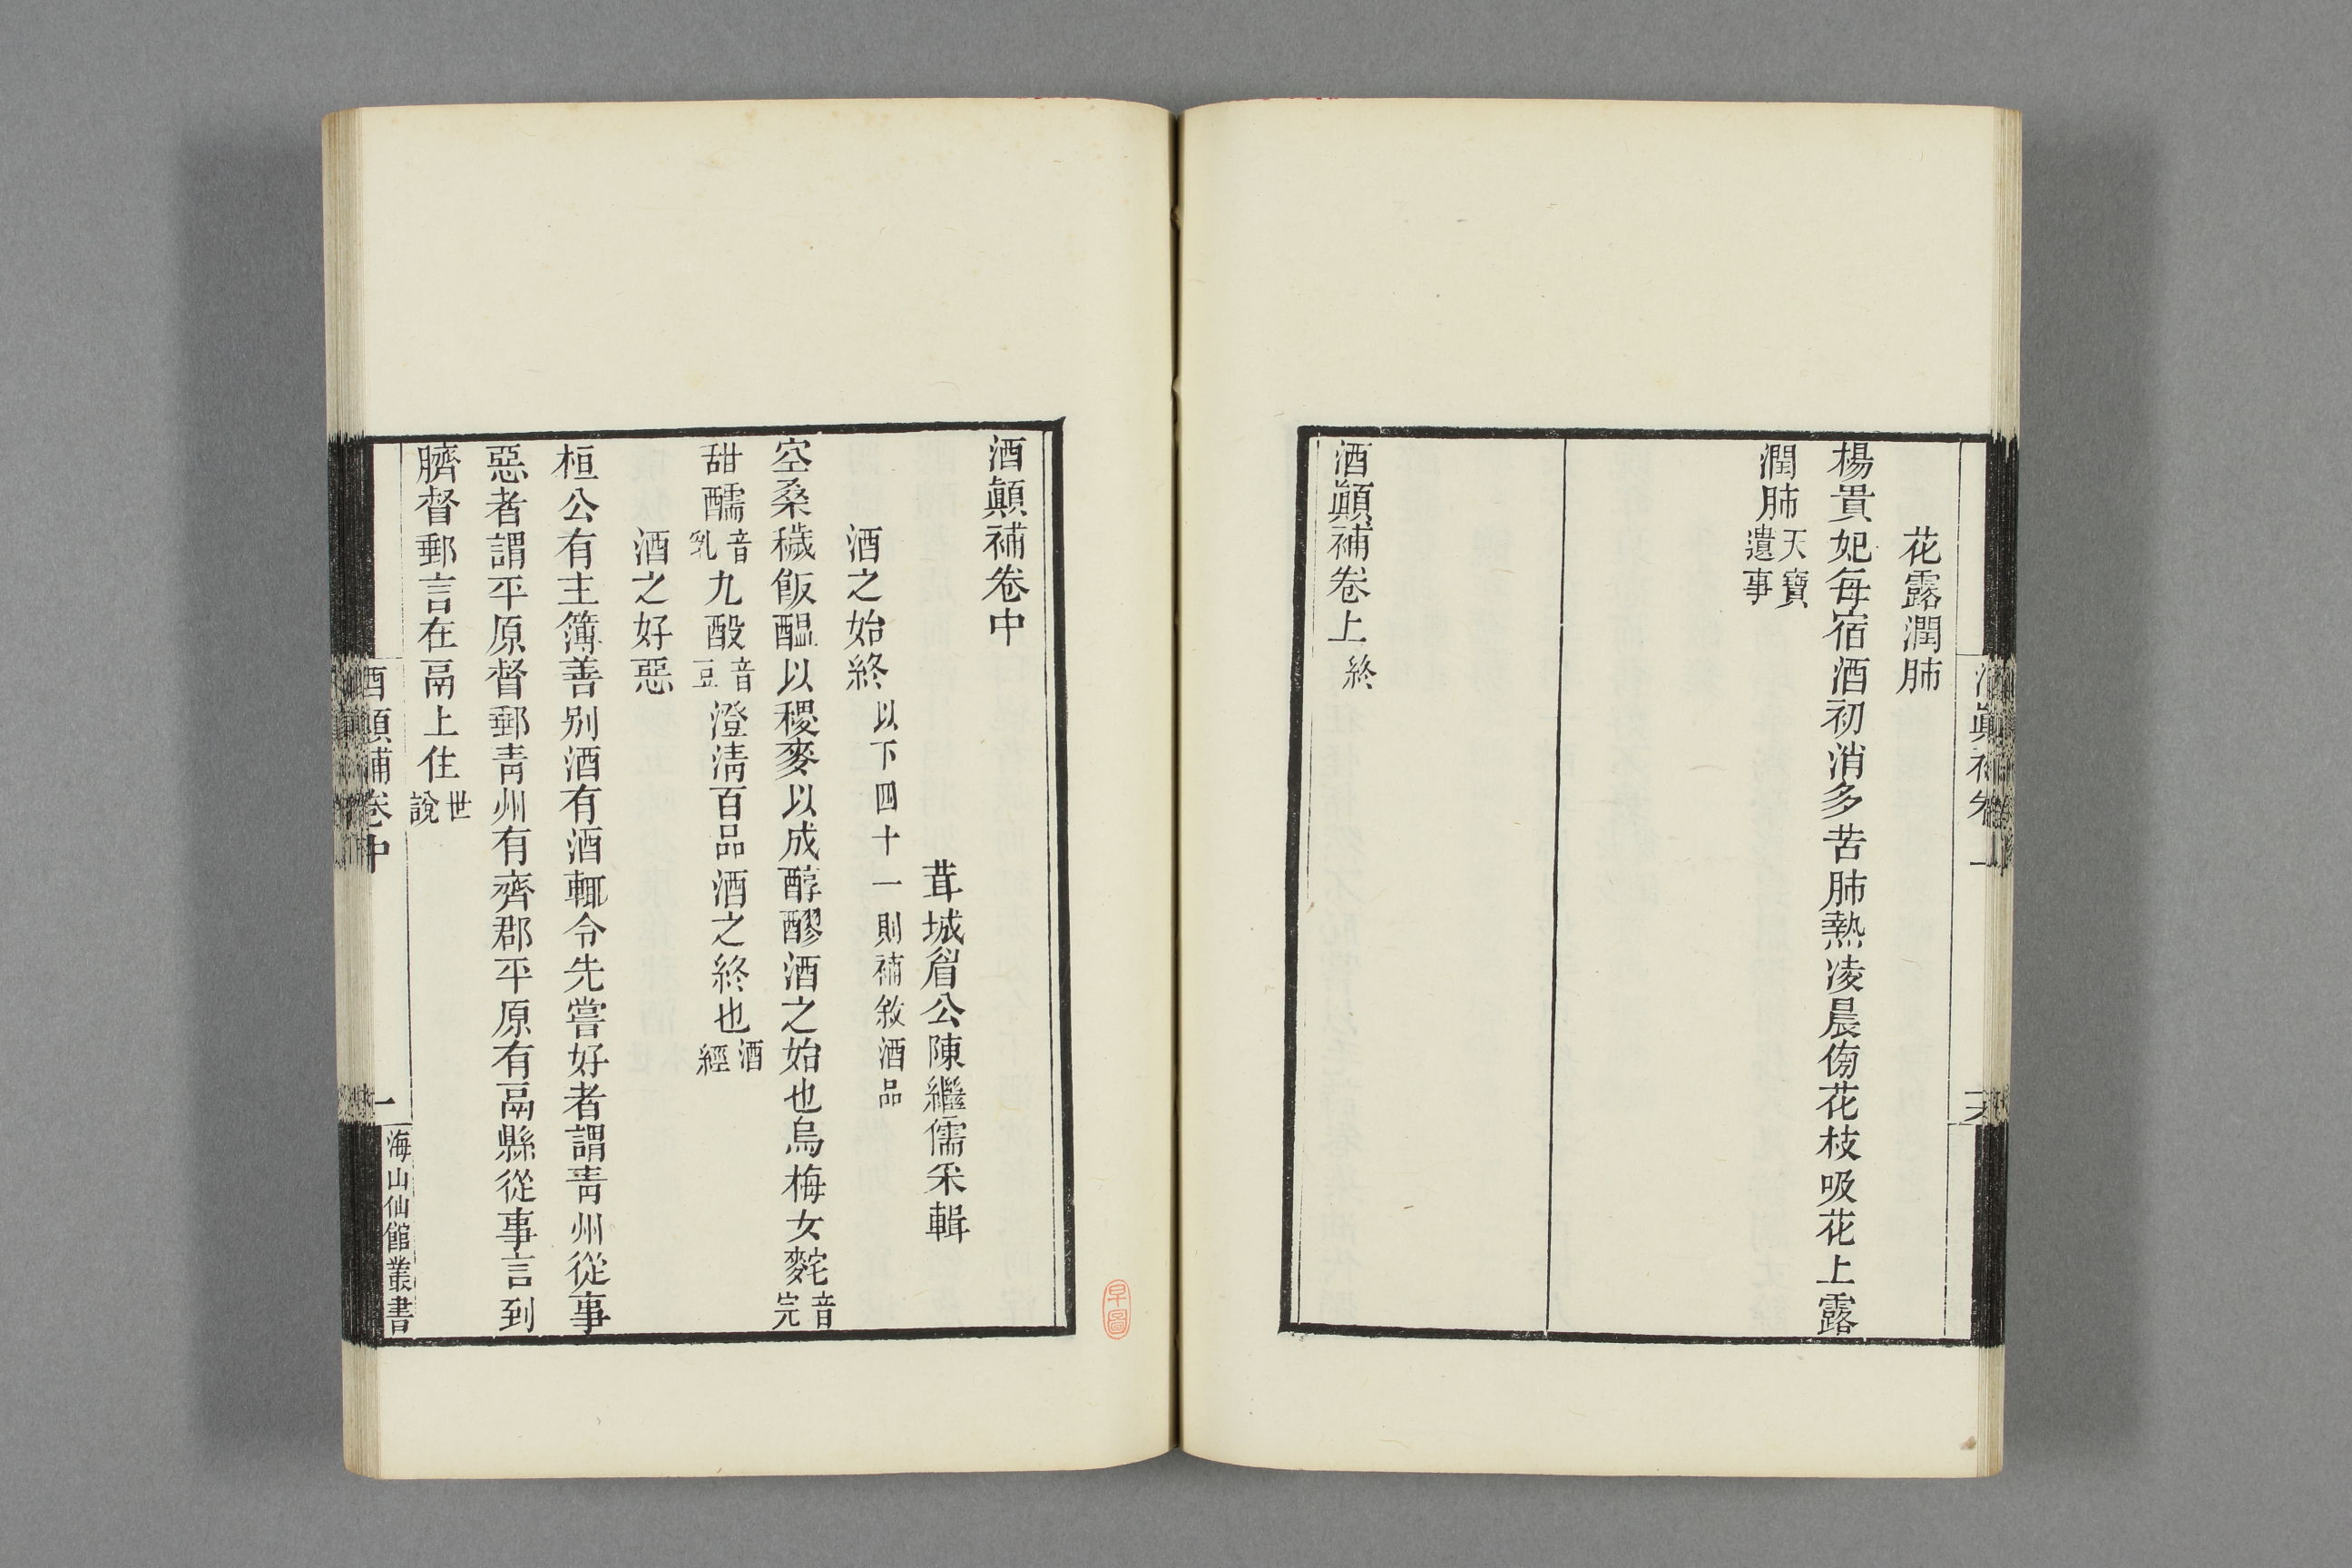 花露潤肺
楊貴妃每宿酒初消多苦肺熱凌晨傍花枝吸花上露
潤肺天寶遺事
酒顚補卷上終
酒顚補卷中
茸城眉公陳繼儒采輯
酒之始終以下四十一則補敘酒品
空桑穢飯醞以稷麥以成醇醪酒之始也烏梅女䴷音完
甜醹音乳九酘音豆澄淸百品酒之終也酒經
酒之好惡
桓公有主簿善別酒有酒輒令先嘗好者謂靑州從事
惡者謂平原督郵靑州有齊郡平原有鬲縣從事言到
臍督郵言在鬲上住世說
酒顚補卷中
一
海山仙館叢書